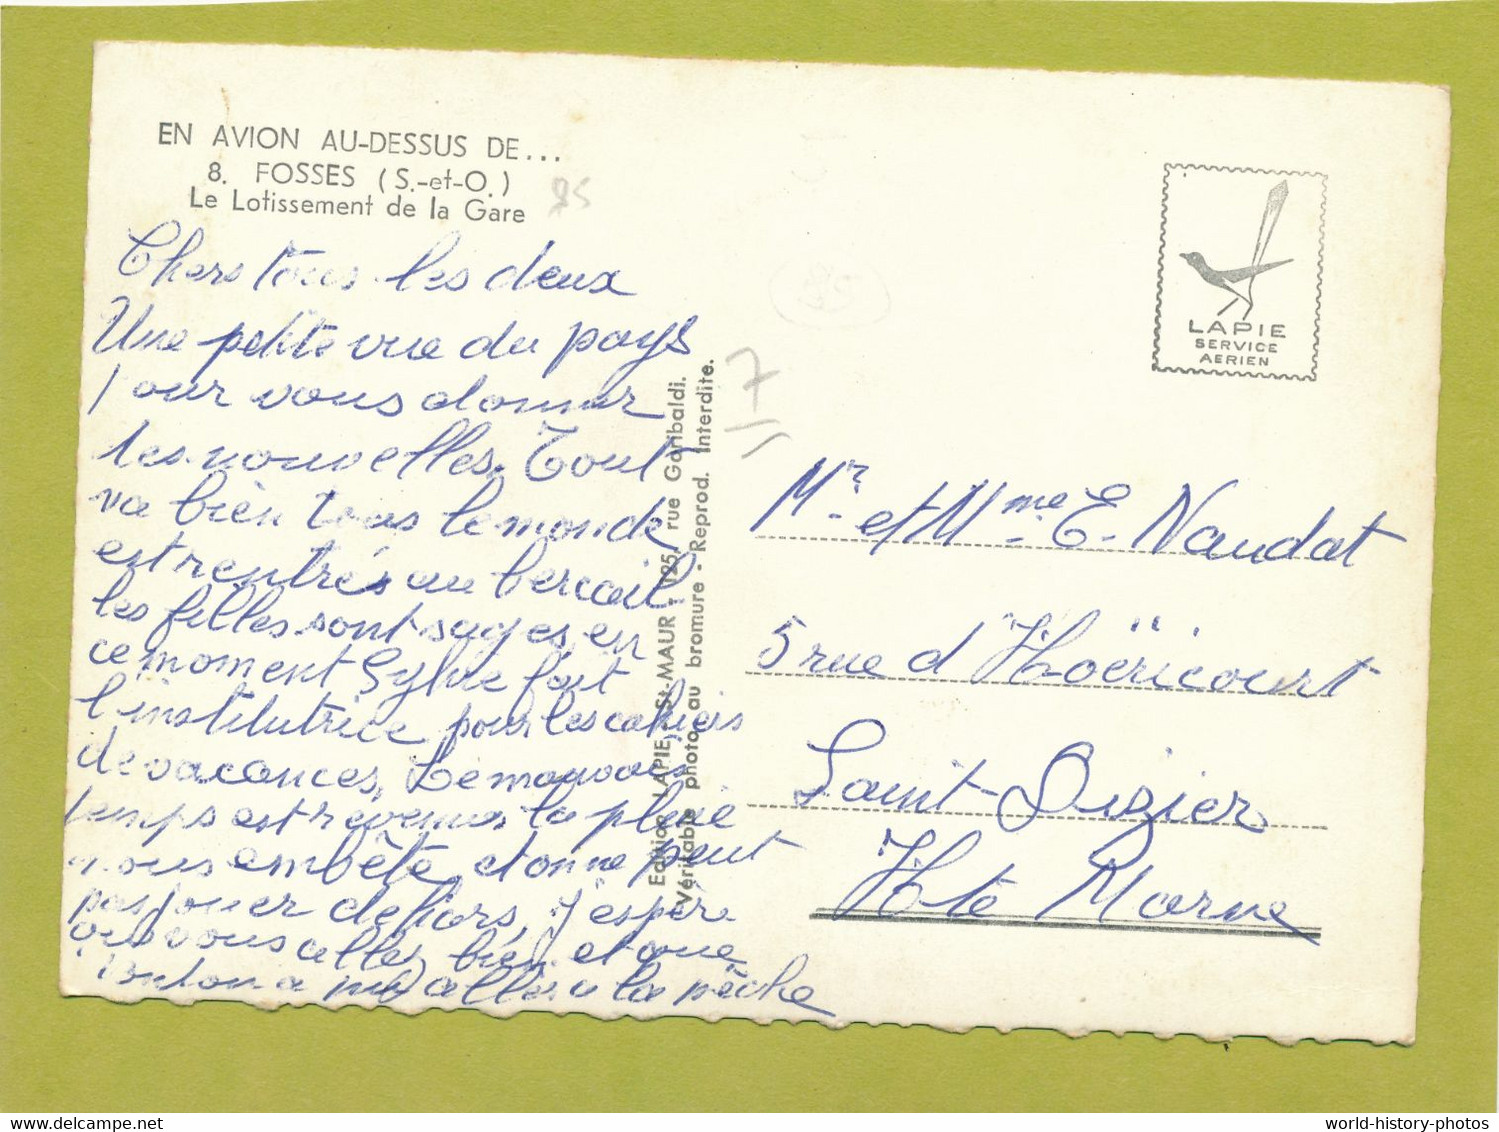 EN AVION AU-DESSUS DE...
8. FOSSES (S.-et-O.)
Le Lotissement de la Gare
95
Chers tous les deux
Une petite vue du pays
Pour vous donner
des nouvelles. Tout
va bien tous le monde
est rentrés au bercail
les filles sont sages en
ce moment Sylvie fait
l'institutrice pour les cahiers
de vacances, Le mauvais
temps est revenus la pluie
nous embête, et on ne peut
pas jouer dehors, J'espère
que vous allez bien et que
Tonton a pu aller a la pêche
Edition LAPIE - St-MAUR - 125, rue Garibaldi.
Véritable photo au bromure - Reprod. Interdite.
7
LAPIE
SERVICE
AERIEN
Mr et Mme E. Naudat
5 rue d'Hoëricourt
Saint-Dizier
Hte Marne
delcampe.net
world-history-photos